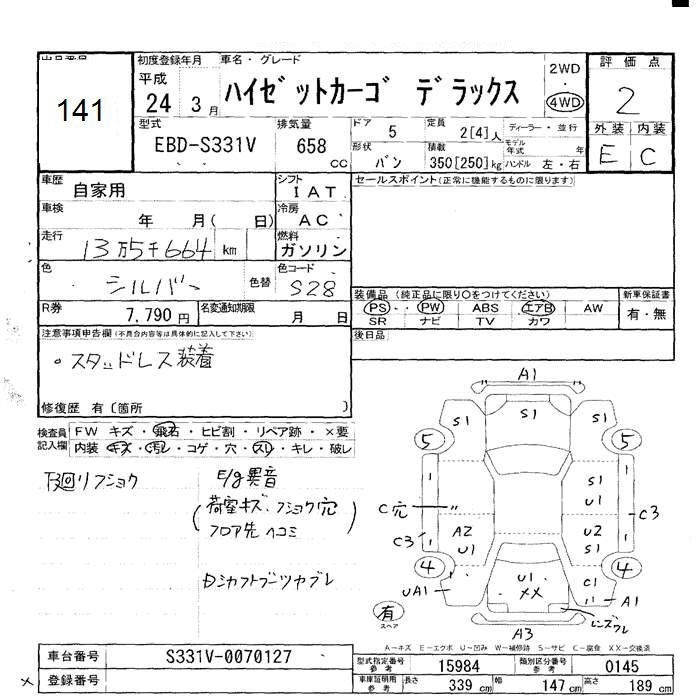 141
初度登録年月 車名・グレード 評価点
平成 24 3月 ハイゼットカーゴ デラックス 2WD 4WD 2
型式 排気量 ドア 定員 ディーラー・並行 外装 内装
EBD-S331V 658 cc 5 2[4]人 E C
形状 積載 モデル年式 年
バン 350[250]kg ハンドル 左・右
車歴 自家用 シフト IAT セールスポイント(正常に機能するものに限ります)
車検 年 月( 日) 冷房 AC
走行 13万5千664 km 燃料 ガソリン
色 シルバー 色替 色コード S28
装備品 (純正品に限り○をつけてください) 新車保証書
R券 7,790円 名変通知期限 月 日 PS PW ABS エアB AW 有・無
SR ナビ TV カワ
注意事項申告欄(不具合内容等は具体的に記入して下さい) 後日品
・スタッドレス装着
修復歴 有〔箇所 〕
検査員記入欄 FW キズ・飛石・ヒビ割・リペア跡・×要
内装・キズ・汚レ・コゲ・穴・スリ・キレ・破レ
下廻リフショク E/g異音
(荷室キズ、フショク穴
フロア先ヘコミ)
Dシャフトブーツヤブレ
A1
S1 S1 S1
5 5
S1
U1
C穴 C3
C3 A2 U2
U1 S1
4 4
UA1 U1 C1 A1
XX
有 スペア レンズワレ
A3
A-キズ E-エクボ U-凹み W-補修跡 S-サビ C-腐食 XX-交換済
車台番号 S331V-0070127 型式指定番号 参考 15984 類別区分番号 参考 0145
× 登録番号 車庫証明用 参考 長さ 339 cm 幅 147 cm 高さ 189 cm